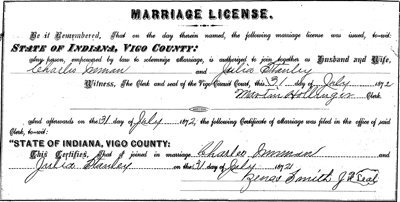 MARRIAGE LICENSE.
Be it Remembered, That on the day therein named, the following marriage license was issued, to-wit:
STATE OF INDIANA, VIGO COUNTY:
Any person, empowered by law to solemnize marriage, is authorized to join together as Husband and Wife,
Charles Inman and Julia Stanley
Witness, The Clerk and seal of the Vigo Circuit Court, this 31 day of July 1872
Martin Hollinger Clerk.
and afterwards on the 31 day of July 1872, the following Certificate of Marriage was filed in the office of said
Clerk, to-wit:
"STATE OF INDIANA, VIGO COUNTY:
This Certifies, That I joined in marriage Charles Inman and
Julia Stanley on the 31 day of July 1872
Smith J P Seal